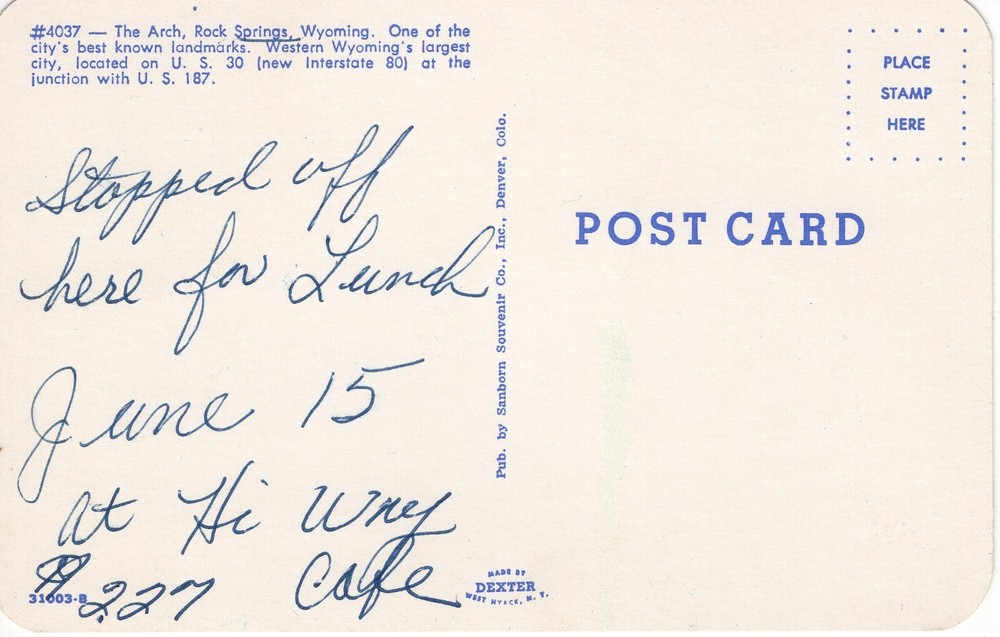 #4037 — The Arch, Rock Springs, Wyoming. One of the
city's best known landmarks. Western Wyoming's largest
city, located on U. S. 30 (new Interstate 80) at the
junction with U. S. 187.
Stopped off
here for Lunch
June 15
at Hi Way
Cafe
2.27
31003-B
Pub. by Sanborn Souvenir Co., Inc., Denver, Colo.
MADE BY
DEXTER
WEST NYACK, N. Y.
PLACE
STAMP
HERE
POST CARD